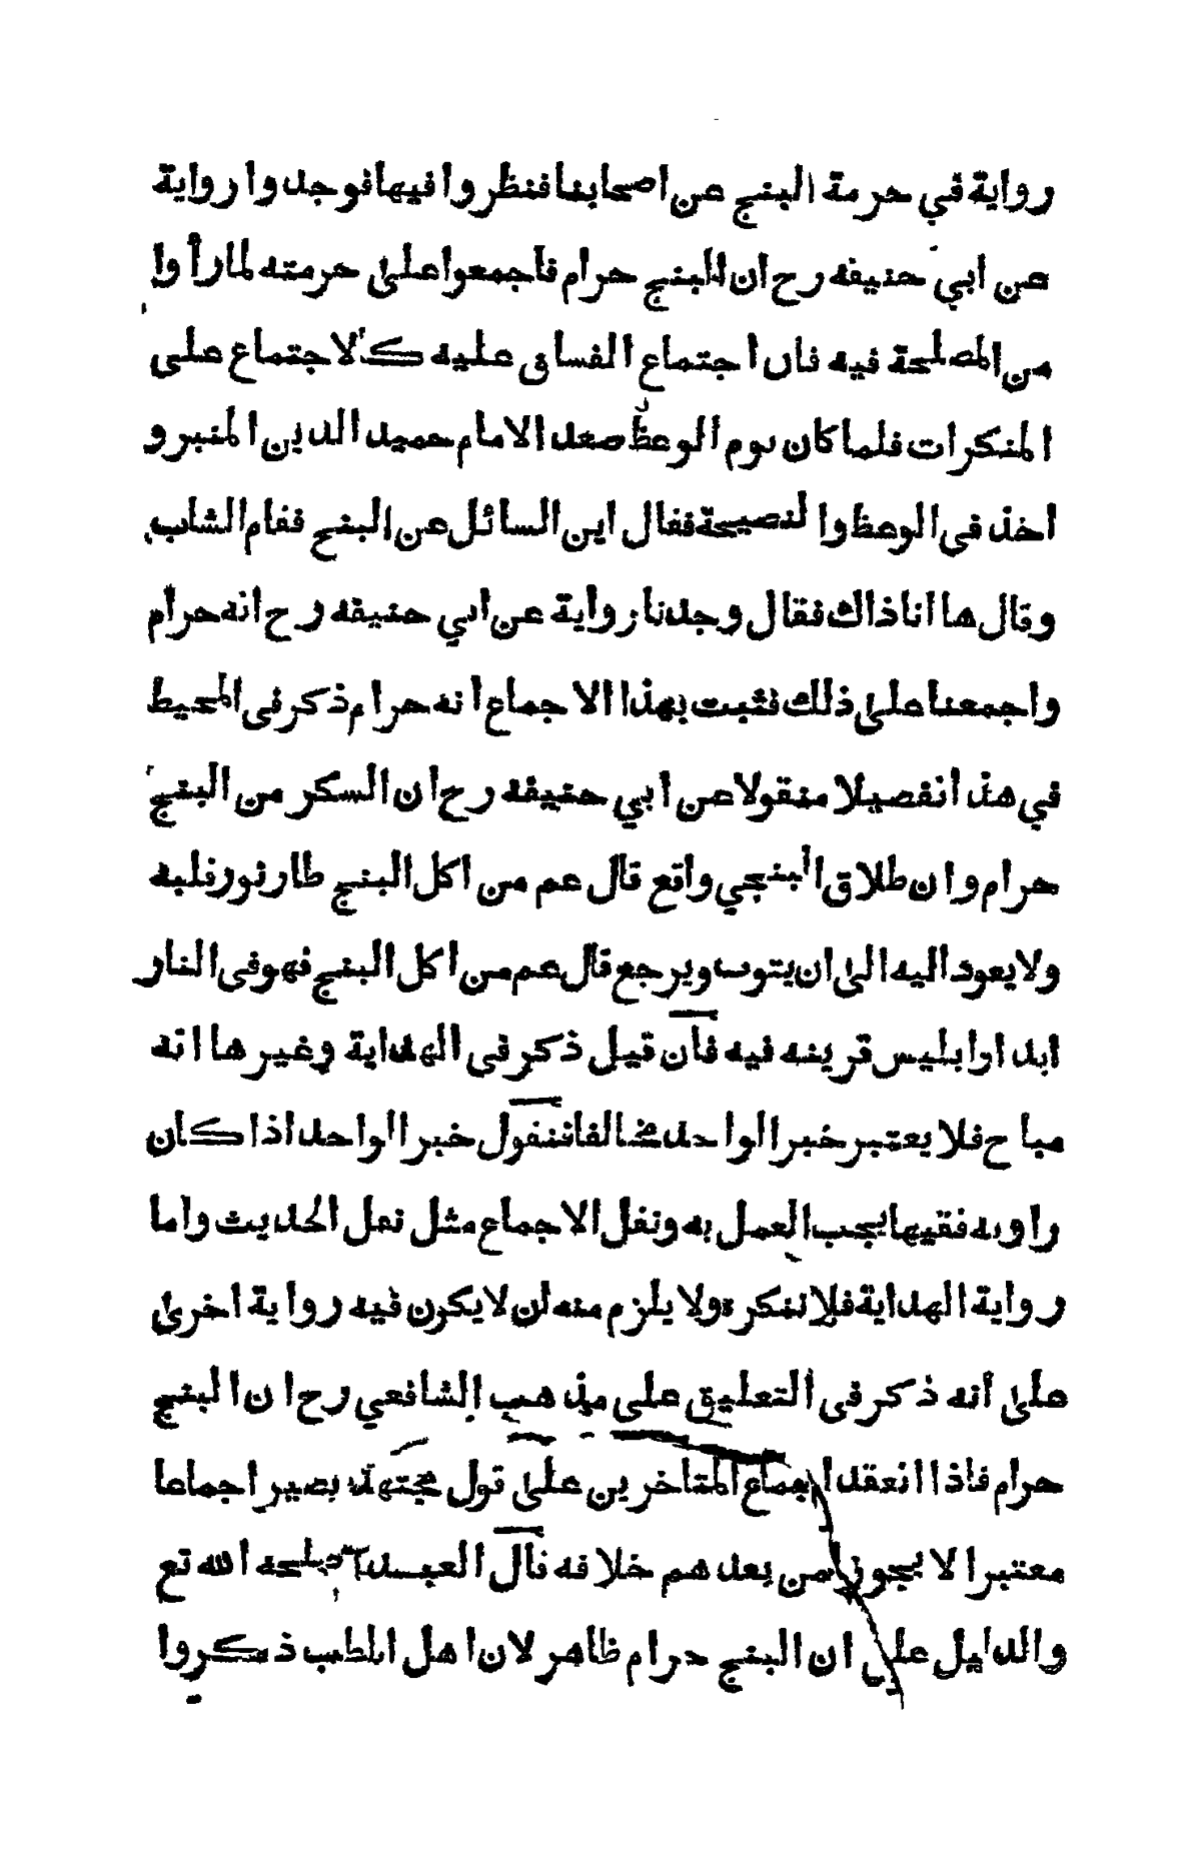 رواية في حرمة البنج عن اصحابنا فنظروا فيها فوجدوا رواية
عن ابي حنيفه رح ان البنج حرام فاجمعوا على حرمته لما رأوا
من المصلحة فيه فان اجتماع الفساق عليه كالاجتماع على
المنكرات فلما كان يوم الوعظ صعد الامام حميد الدين المنبر و
اخذ في الوعظ والنصيحة فقال اين السائل عن البنج فقام الشاب
وقال ها انا ذاك فقال وجدنا رواية عن ابي حنيفه رح انه حرام
واجمعنا على ذلك فثبت بهذا الاجماع انه حرام ذكر في المحيط
في هذا تفصيلا منقولا عن ابي حنيفه رح ان السكر من البنج
حرام وان طلاق البنجي واقع قال عم من اكل البنج طار نور قلبه
ولا يعود اليه الى ان يتوب ويرجع قال عم من اكل البنج فهو في النار
ابدا وابليس قرينه فيه فان قيل ذكر في الهداية وغيرها انه
مباح فلا يعتبر خبر الواحد مخالفا فنقول خبر الواحد اذا كان
راويه فقيها يجب العمل به ونقل الاجماع مثل نقل الحديث واما
رواية الهداية فلا ننكره ولا يلزم منه ان لا يكون فيه رواية اخرى
على انه ذكر في التعليق على مذهب الشافعي رح ان البنج
حرام فاذا انعقد اجماع المتاخرين على قول مجتهد يصير اجماعا
معتبرا لا يجوز لمن بعدهم خلافه قال العبد اصلحه الله تع
والدليل على ان البنج حرام ظاهر لان اهل الطب ذكروا